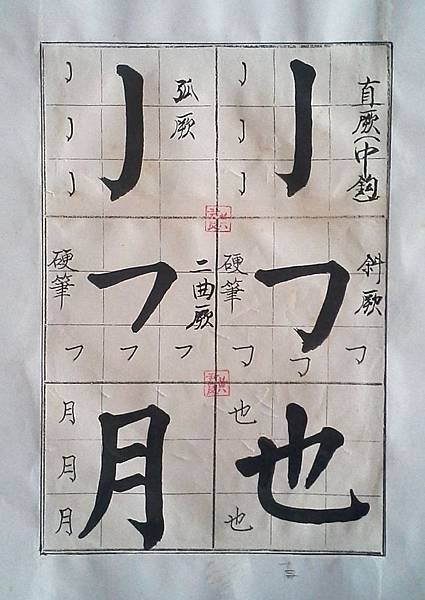 直厥(中鈎)
亅
亅
亅
亅
弧厥
亅
亅
亅
亅
斜厥
㇆
㇆ ㇆ ㇆
硬筆
二曲厥
㇇
㇇ ㇇ ㇇
硬筆
也
也
也
月
月
月
月